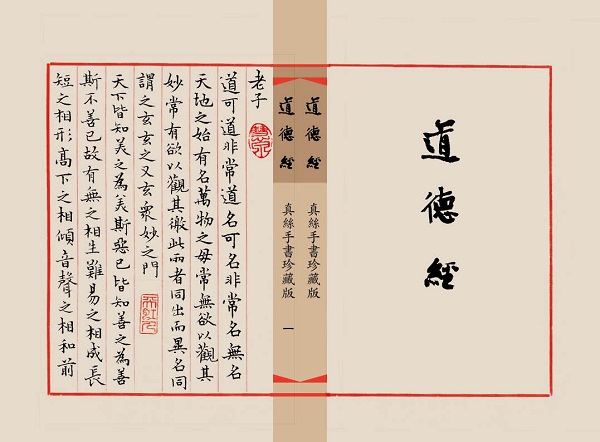 道德經
道德經 真絲手書珍藏版
道德經 真絲手書珍藏版 一
老子
道可道非常道名可名非常名無名
天地之始有名萬物之母常無欲以觀其
妙常有欲以觀其徼此兩者同出而異名同
謂之玄玄之又玄衆妙之門
天下皆知美之為美斯惡已皆知善之為善
斯不善已故有無之相生難易之相成長
短之相形高下之相傾音聲之相和前